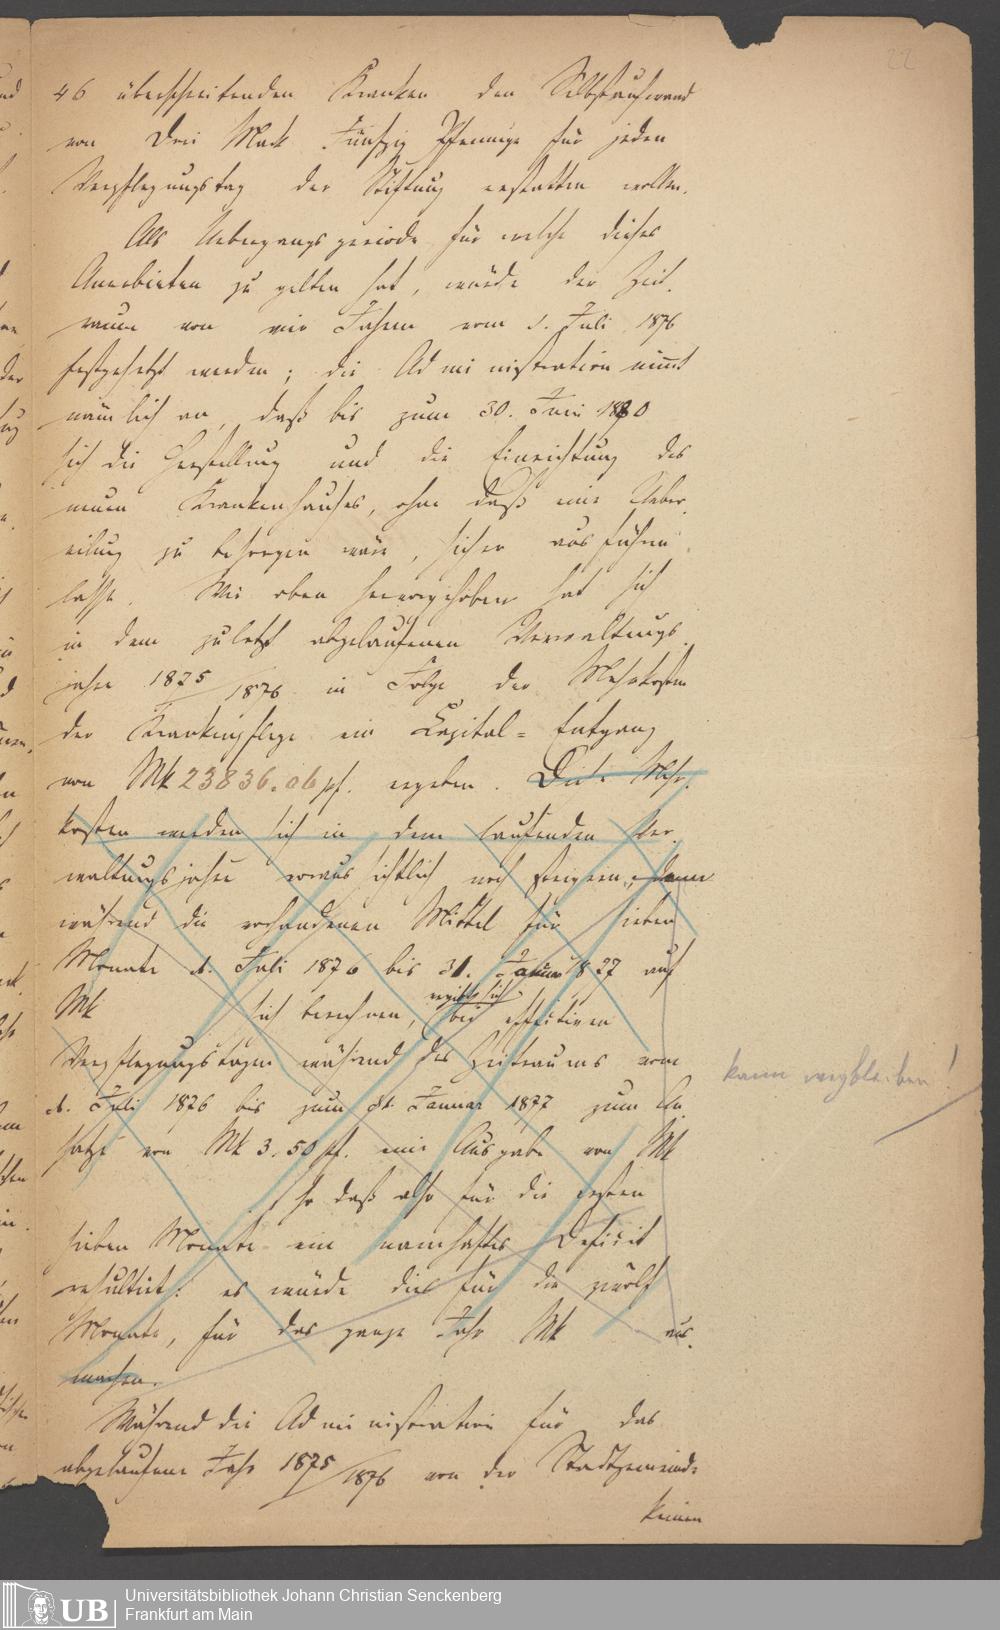 22
46 überschreitenden Kranken den Selbstaufwand
von Drei Mark Fünfzig Pfennige für jeden
Verpflegungstag der Stiftung erstatten wollen.
Als Uebergangsperiode für welche dieses
Anerbieten zu gelten hat, würde der Zeit-
raum von vier Jahren vom 1. Juli 1876
festgesetzt werden; die Administration nimt
nämlich an, daß bis zum 30. Juni 1880
sich die Herstellung und die Einrichtung des
neuen Krankenhauses, ohne daß eine Ueber-
eilung zu besorgen wäre, sicher ausführen
lasse. Wie oben hervorgehoben hat sich
in dem zuletzt abgelaufenen Verwaltungs-
jahre 1875/1876 in Folge der Mehrkosten
der Krankenpflege ein Capital-Entgang
von Mk 23836.06 pf. ergeben. Diese Mehr-
kosten werden sich in dem laufenden Ver-
waltungsjahre voraussichtlich noch steigern, denn
während die vorhandenen Mittel für sieben
Monate d. Juli 1876 bis 31. Januar 1877 auf
Mk sich berechnen, ergibt sich bei effectiven
Verpflegungstagen während des Zeitraums vom
1. Juli 1876 bis zum 31. Januar 1877 zum An-
satze von Mk 3.50 pf. eine Ausgabe von Mk
so daß also für die ersten
sieben Monate ein namhaftes Deficit
resultirt: es würde dies für die zwölf
Monate, für das ganze Jahr Mk aus-
machen.
kann wegbleiben!
Während die Administration für das
abgelaufene Jahr 1875/1876 von der Stadtgemeinde
keinen
UB
Universitätsbibliothek Johann Christian Senckenberg
Frankfurt am Main